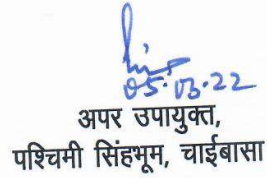 05.03.22
अपर उपायुक्त,
पश्चिमी सिंहभूम, चाईबासा